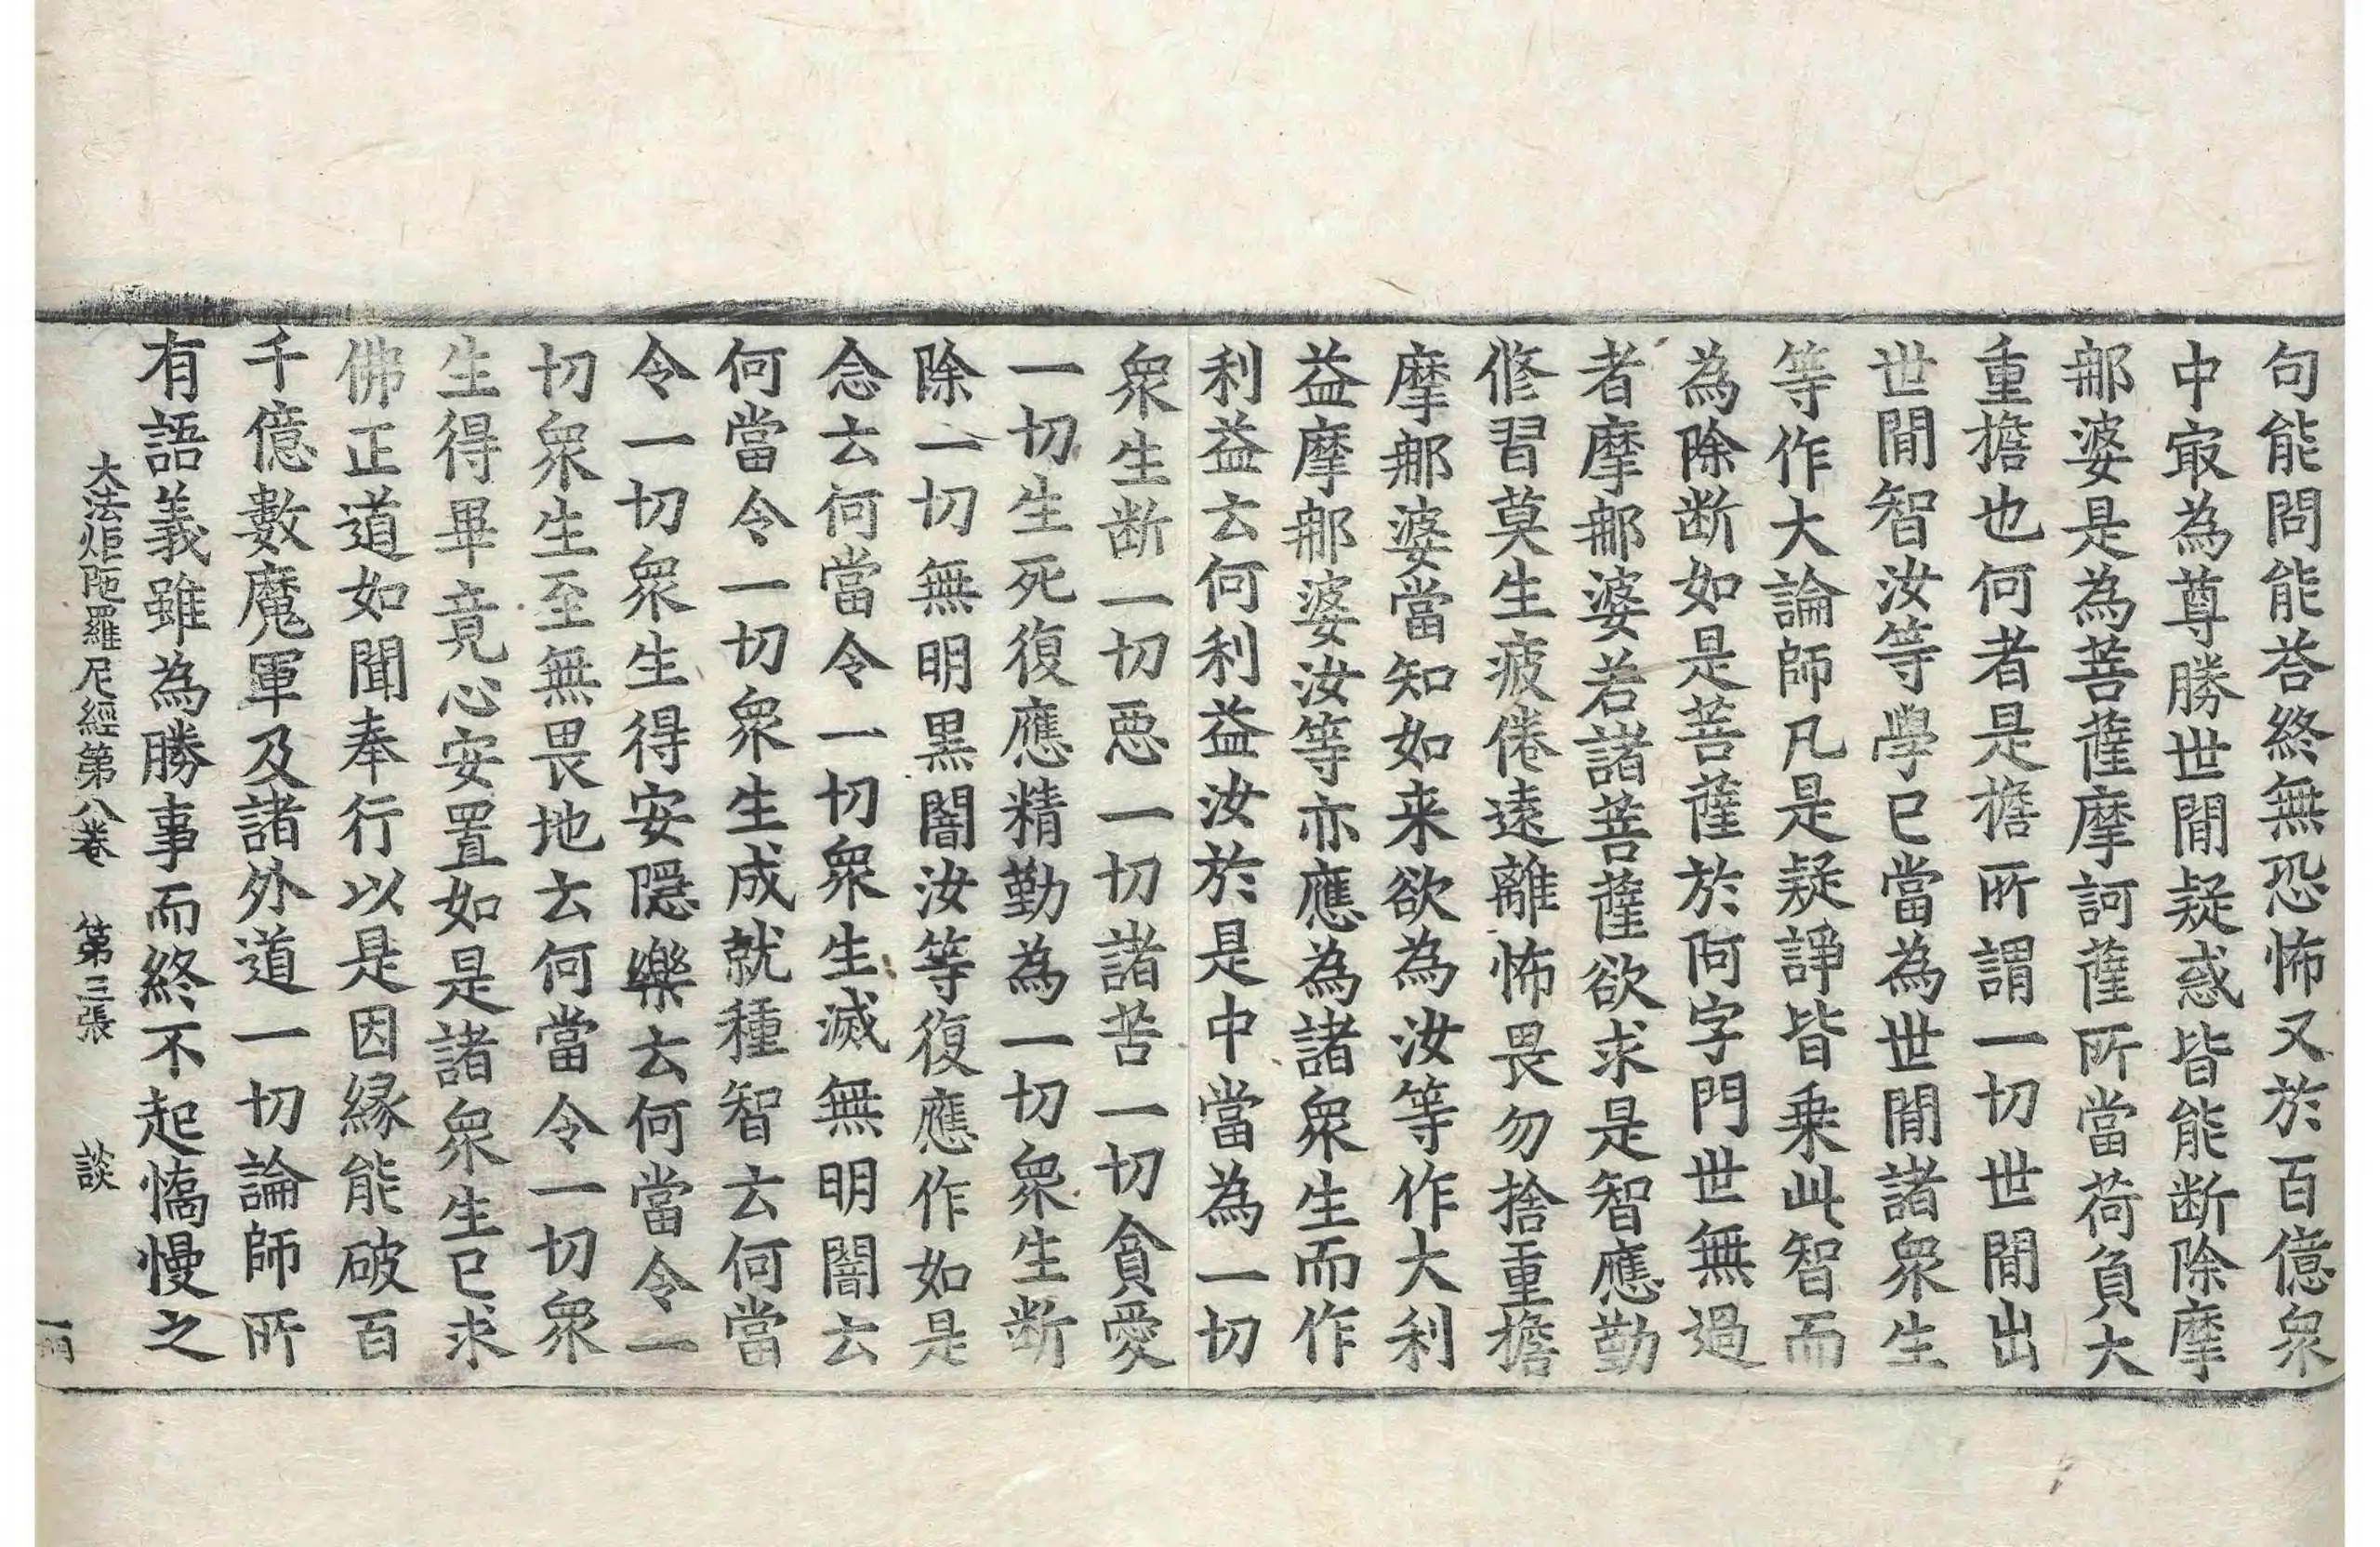 句能問能荅終無恐怖又於百億衆
中㝡為尊勝世間疑惑皆能断除摩
那婆是為菩薩摩訶薩所當荷負大
重擔也何者是擔所謂一切世間出
世間智汝等學已當為世間諸衆生
等作大論師凡是疑諍皆乗此智而
為除断如是菩薩於阿字門世無過
者摩那婆若諸菩薩欲求是智應勤
修習莫生疲倦遠離怖畏勿捨重擔
摩那婆當知如来欲為汝等作大利
益摩那婆汝等亦應為諸衆生而作
利益云何利益汝於是中當為一切
衆生断一切惡一切諸苦一切貪愛
一切生死復應精勤為一切衆生断
除一切無明黒闇汝等復應作如是
念云何當令一切衆生滅無明闇云
何當令一切衆生成就種智云何當
令一切衆生得安隱樂云何當令一
切衆生至無畏地云何當令一切衆
生得畢竟心安置如是諸衆生已求
佛正道如聞奉行以是因縁能破百
千億數魔軍及諸外道一切論師所
有語義雖為勝事而終不起憍慢之
大法炬陁羅尼經第八卷　第三張　談